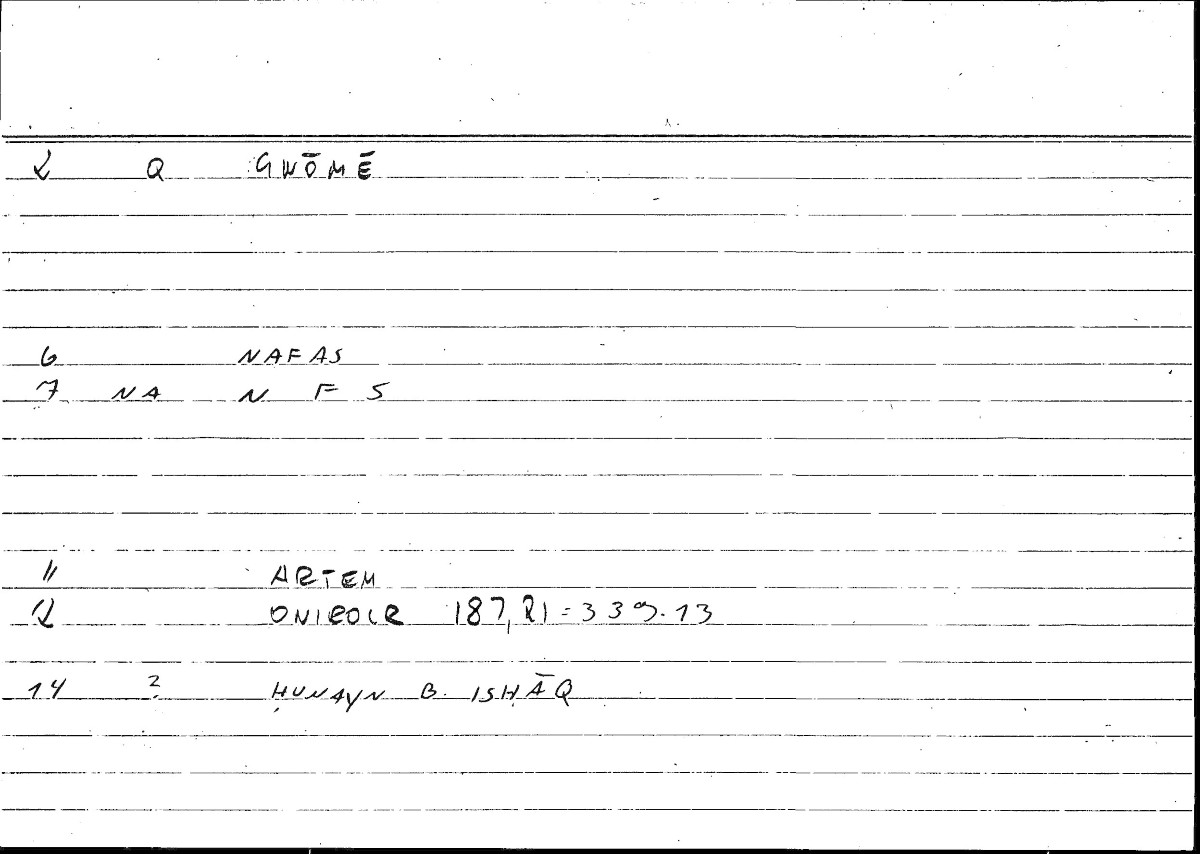 2 Q GNŌMĒ
6 NAFAS
7 NA N F S
11 ARTEM
12 ONIROCR 187,21=339.13
14 ? ḤUNAYN B. ISḤĀQ